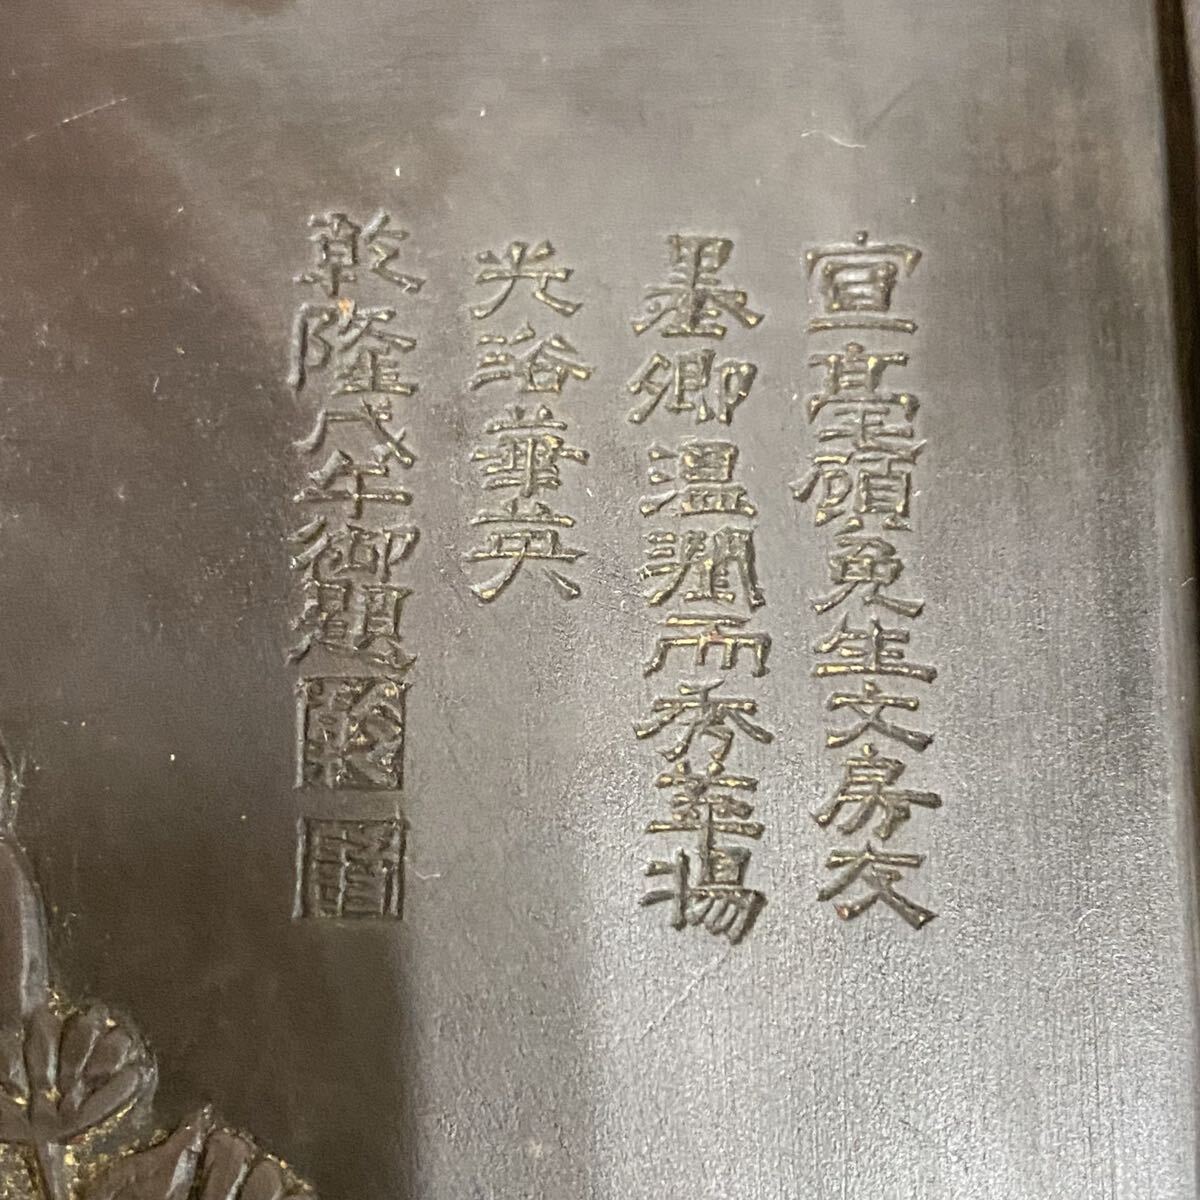 宣免生文房友
墨卿溫潤而秀並揚
光浴華英
乾隆戊午御題